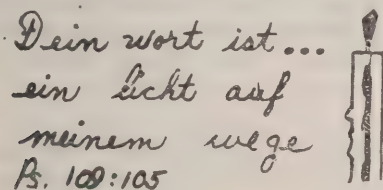 Dein wort ist...
ein licht auf
meinem wege
Ps. 109:105